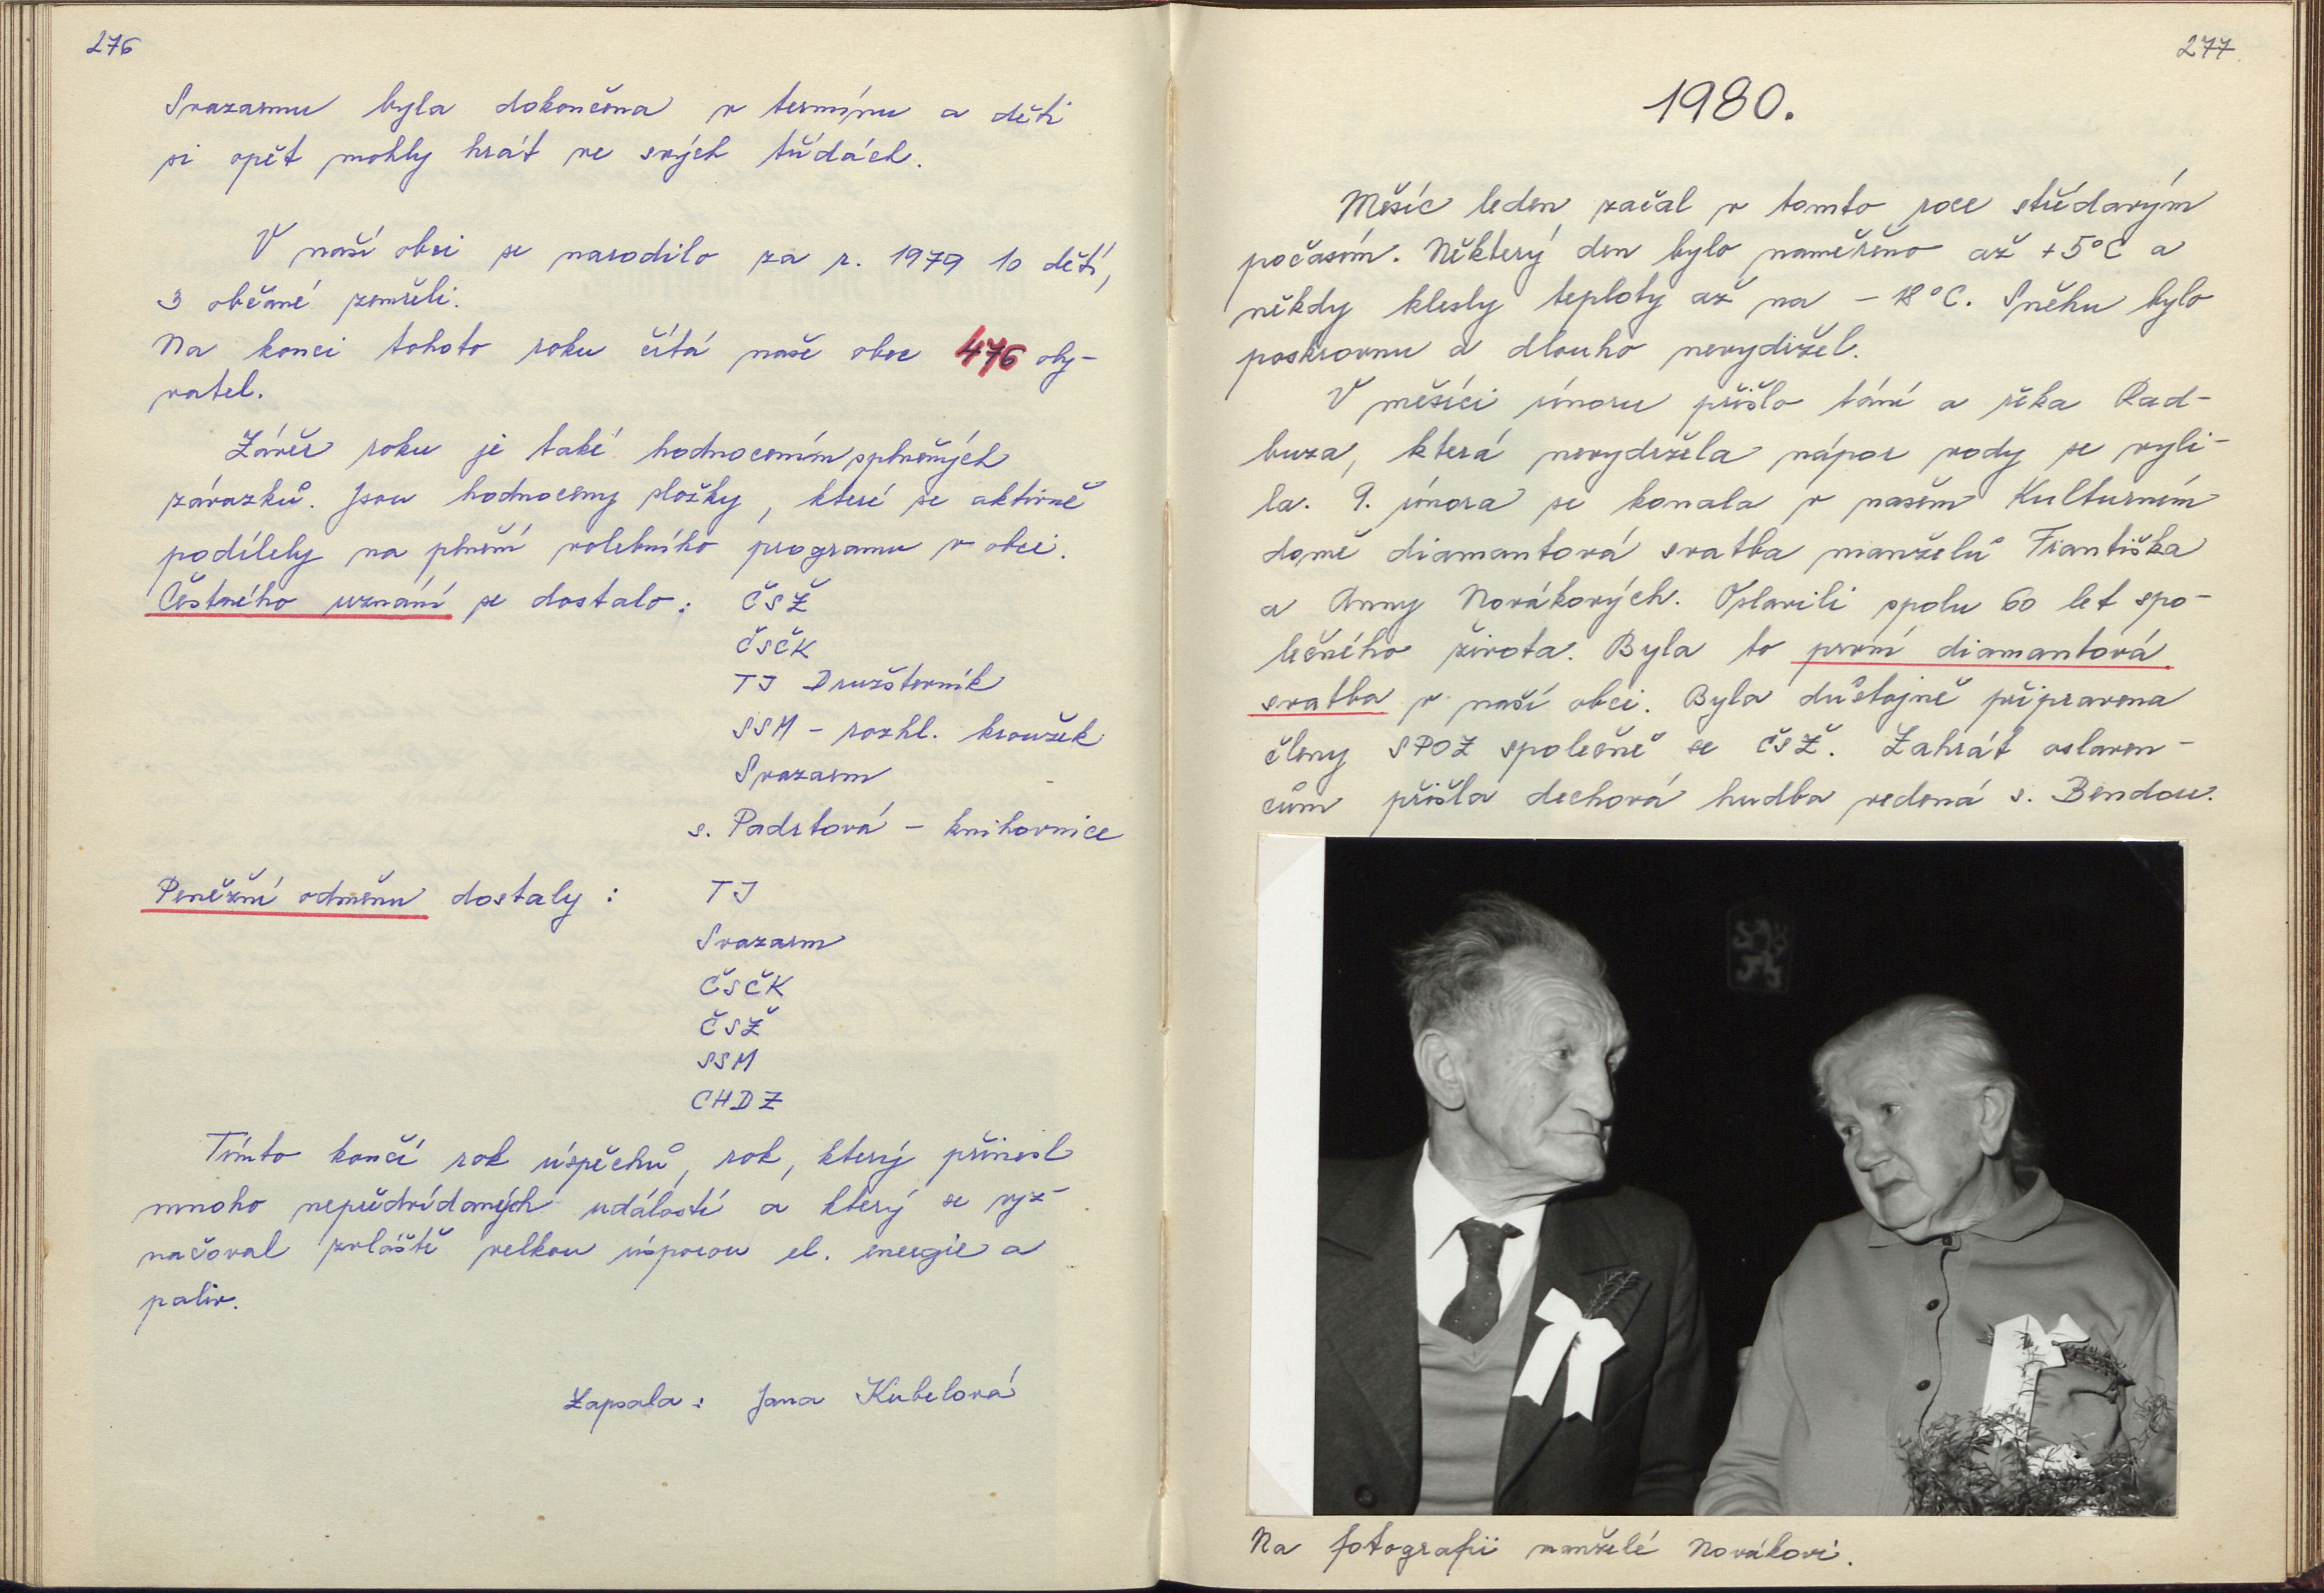 276
Svazarmu byla dokončena v termínu a děti
si opět mohly hrát ve svých třídách.
V naší obci se narodilo za r. 1979 10 dětí,
3 občané zemřeli.
Na konci tohoto roku čítá naše obec 476 oby-
vatel.
Závěr roku je také hodnocením splněných
závazků. Jsou hodnoceny složky, které se aktivně
podílely na plnění volebního programu v obci.
Čestného uznání se dostalo: ČSŽ
ČSČK
TJ Družstevník
SSM - rozhl. kroužek
Svazarm
s. Padrtová - knihovnice
Peněžní odměnu dostaly: TJ
Svazarm
ČSČK
ČSŽ
SSM
CHDZ
Tímto končí rok úspěchů, rok, který přinesl
mnoho nepředvídaných událostí a který se vyz-
načoval zvláště velkou úsporou el. energie a
paliv.
Zapsala: Jana Kubelová
277
1980.
Měsíc leden začal v tomto roce střídavým
počasím. Některý den bylo naměřeno až +5°C a
někdy klesly teploty až na -18°C. Sněhu bylo
poskrovnu a dlouho nevydržel.
V měsíci únoru přišlo tání a řeka Rad-
buza, která nevydržela nápor vody se vyli-
la. 9. února se konala v našem Kulturním
domě diamantová svatba manželů Františka
a Anny Novákových. Oslavili spolu 60 let spo-
lečného života. Byla to první diamantová
svatba v naší obci. Byla důstojně připravena
členy SPOZ společně se ČSŽ. Zahrát oslaven-
cům přišla dechová hudba vedená s. Bendou.
Na fotografii manželé Novákovi.